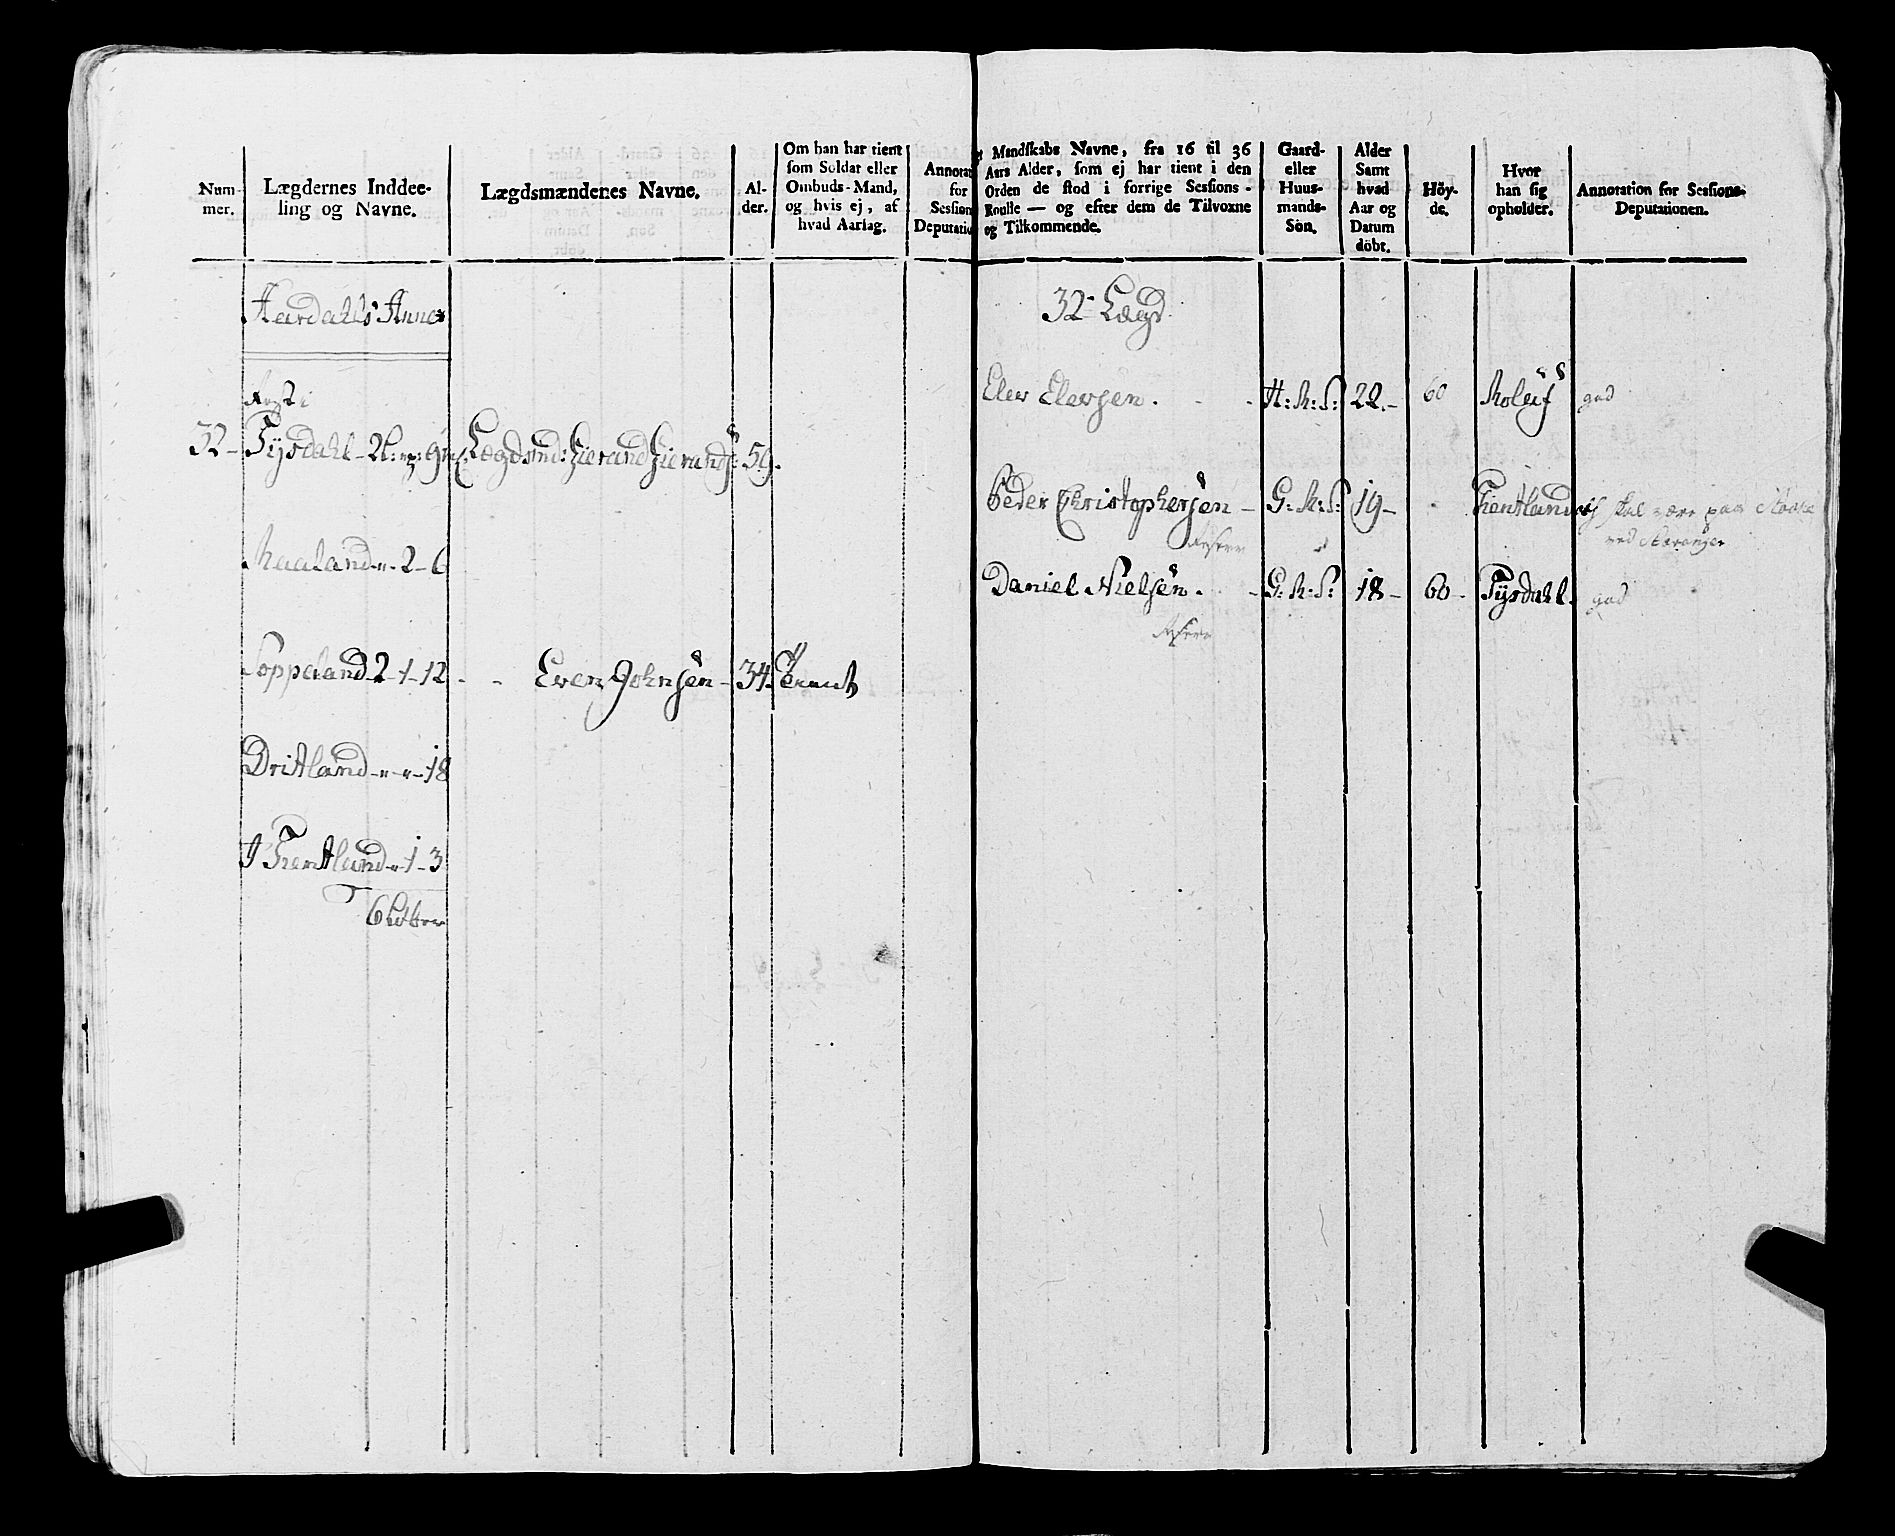 Num-
mer.
Lægdernes Inddee-
ling og Navne.
Lægdsmændenes Navne.
Al-
der.
Om han har tient
som Soldar eller
Ombuds-Mand,
og hvis ej, af
hvad Aarsag.
Annotat
for
Session
Deputatio
Aardahls Annex
32 Tysdahl
Lægdsmd: Zierand Zierands: 59.
Raaland 2 - 6
Soppeland 2 - 1 - 12 Even Johnsen 34.
Dritland - 18
Trentland 1 - 3
6
Mandskabs Navne, fra 16 til 36
Aars Alder, som ej har tient i den
Orden de stod i forrige Sessions-
Roulle — og efter dem de Tilvoxne
og Tilkommende.
Gaard-
eller
Huus-
mands-
Sön.
Alder
Samt
hvad
Aar og
Datum
döbt.
Höy-
de.
Hvor
han sig
opholder.
Annotation for Sessions-
Deputationen.
32 Lægd
Elev Elevsen. H: R: S: 22. 60 god
Peder Christophersen G: R: S: 19 skal være paa
ved Stavanger
Daniel Nielsen. G: R: S: 18 60 Tysdahl. god